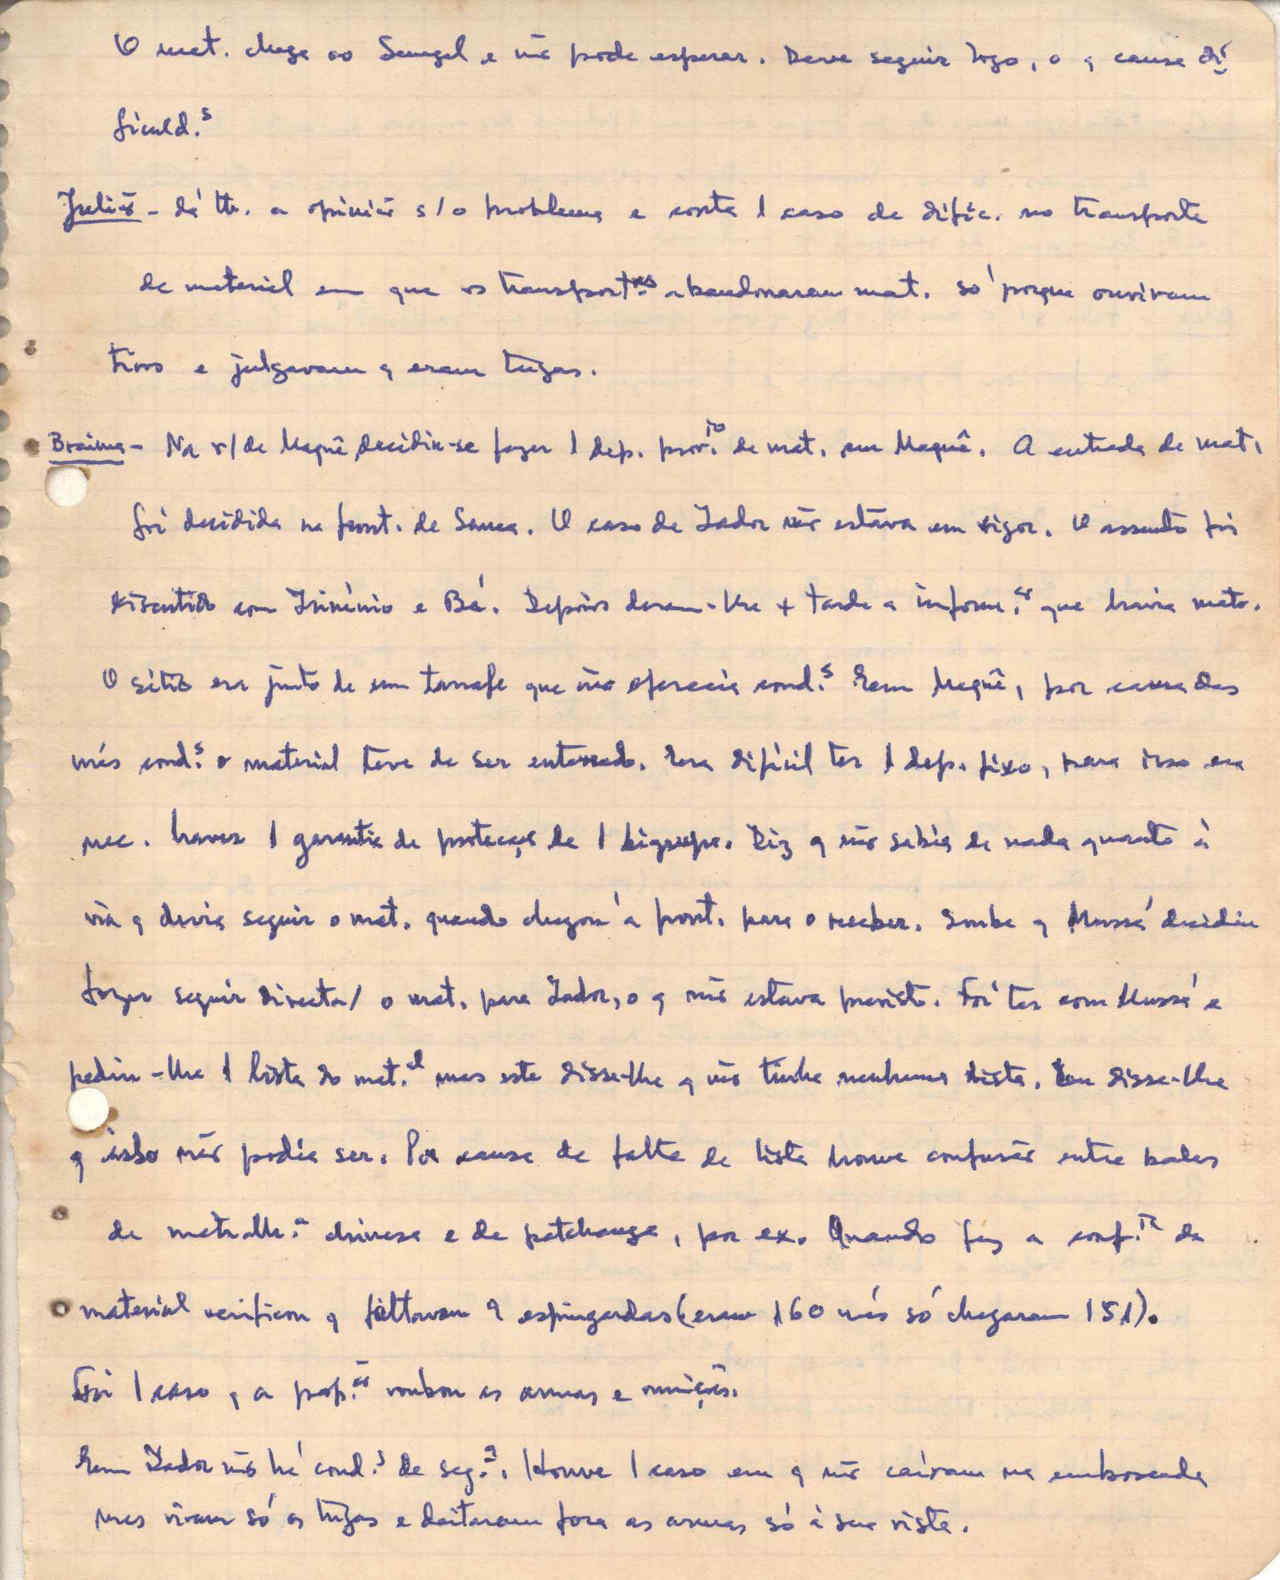 O mat. chega ao Senegal e não pode esperar. Deve seguir logo, o q causa di-
ficuld.s
Julião - dá tb. a opinião s/ o problema e conta 1 caso de dific. no transporte
de material em que os transport.es abandonaram mat. só porque ouviram
tiros e julgavam q eram tugas.
Braima - Na r/ de Maquê decidiu-se fazer 1 dep. prov.io de mat. em Maquê. A entrada de mat.
foi decidida na front. de Samea. O caso de Iador não estava em vigor. O assunto foi
discutido com Irinineo e Bá. Depois deram-lhe + tarde a inform.ão que havia mato.
O sítio era junto de um tarrafe que não oferecia cond.s Em Maquê, por causa das
más cond.s o material teve de ser enterrado. Era difícil ter 1 dep. fixo, para isso era
nec. haver 1 garantia de protecção de 1 bigrupo. Diz q não sabia de nada quanto à
via q devia seguir o mat. quando chegou à front. para o receber. Soube q Mussá decidiu
fazer seguir directa/ o mat. para Iador, o q não estava previsto. Foi ter com Mussá e
pediu-lhe 1 lista do mat.al mas este disse-lhe q não tinha nenhuma lista. Eu disse-lhe
q isso não podia ser. Por causa de falta de lista houve confusão entre balas
de metralh.a chinesa e de patchanga, por ex. Quando fez a conf.ia do
material verificou q faltavam 9 espingardas (eram 160 más só chegaram 151).
Foi 1 caso q a pop.ão roubou as armas e munições.
Em Iador não há cond.s de seg.a. Houve 1 caso em q não caíram na emboscada
mas viram só os tugas e deitaram fora as armas só à sua vista.